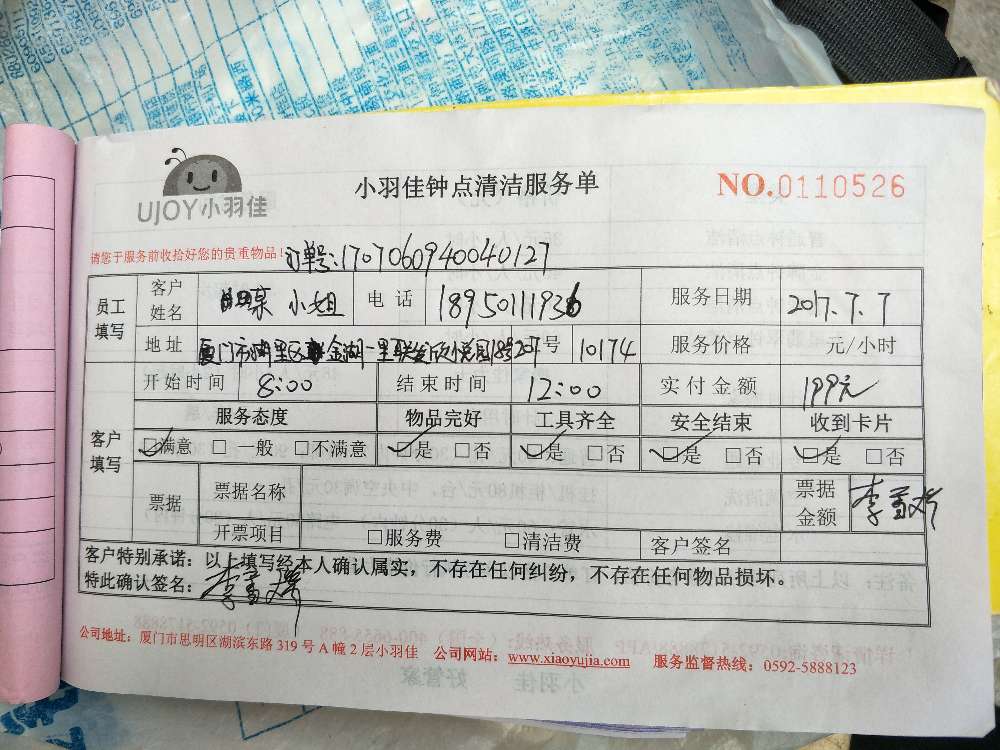 UJOY小羽佳
小羽佳钟点清洁服务单
NO.0110526
请您于服务前收拾好您的贵重物品!
订单号:1707060940040127
员工填写
客户姓名 小姐 电话 18950111936 服务日期 2017.7.7
地址 厦门市湖里区金湖一里联发欣悦园18号207 号 10174 服务价格 元/小时
客户填写
开始时间 8:00 结束时间 12:00 实付金额 199元
服务态度 物品完好 工具齐全 安全结束 收到卡片
☑满意 □一般 □不满意 ☑是 □否 ☑是 □否 ☑是 □否 ☑是 □否
票据 票据名称 票据金额 李
开票项目 □服务费 □清洁费 客户签名
客户特别承诺:以上填写经本人确认属实,不存在任何纠纷,不存在任何物品损坏。
特此确认签名: 李
公司地址:厦门市思明区湖滨东路319号A幢2层小羽佳 公司网站:www.xiaoyujia.com 服务监督热线:0592-5888123